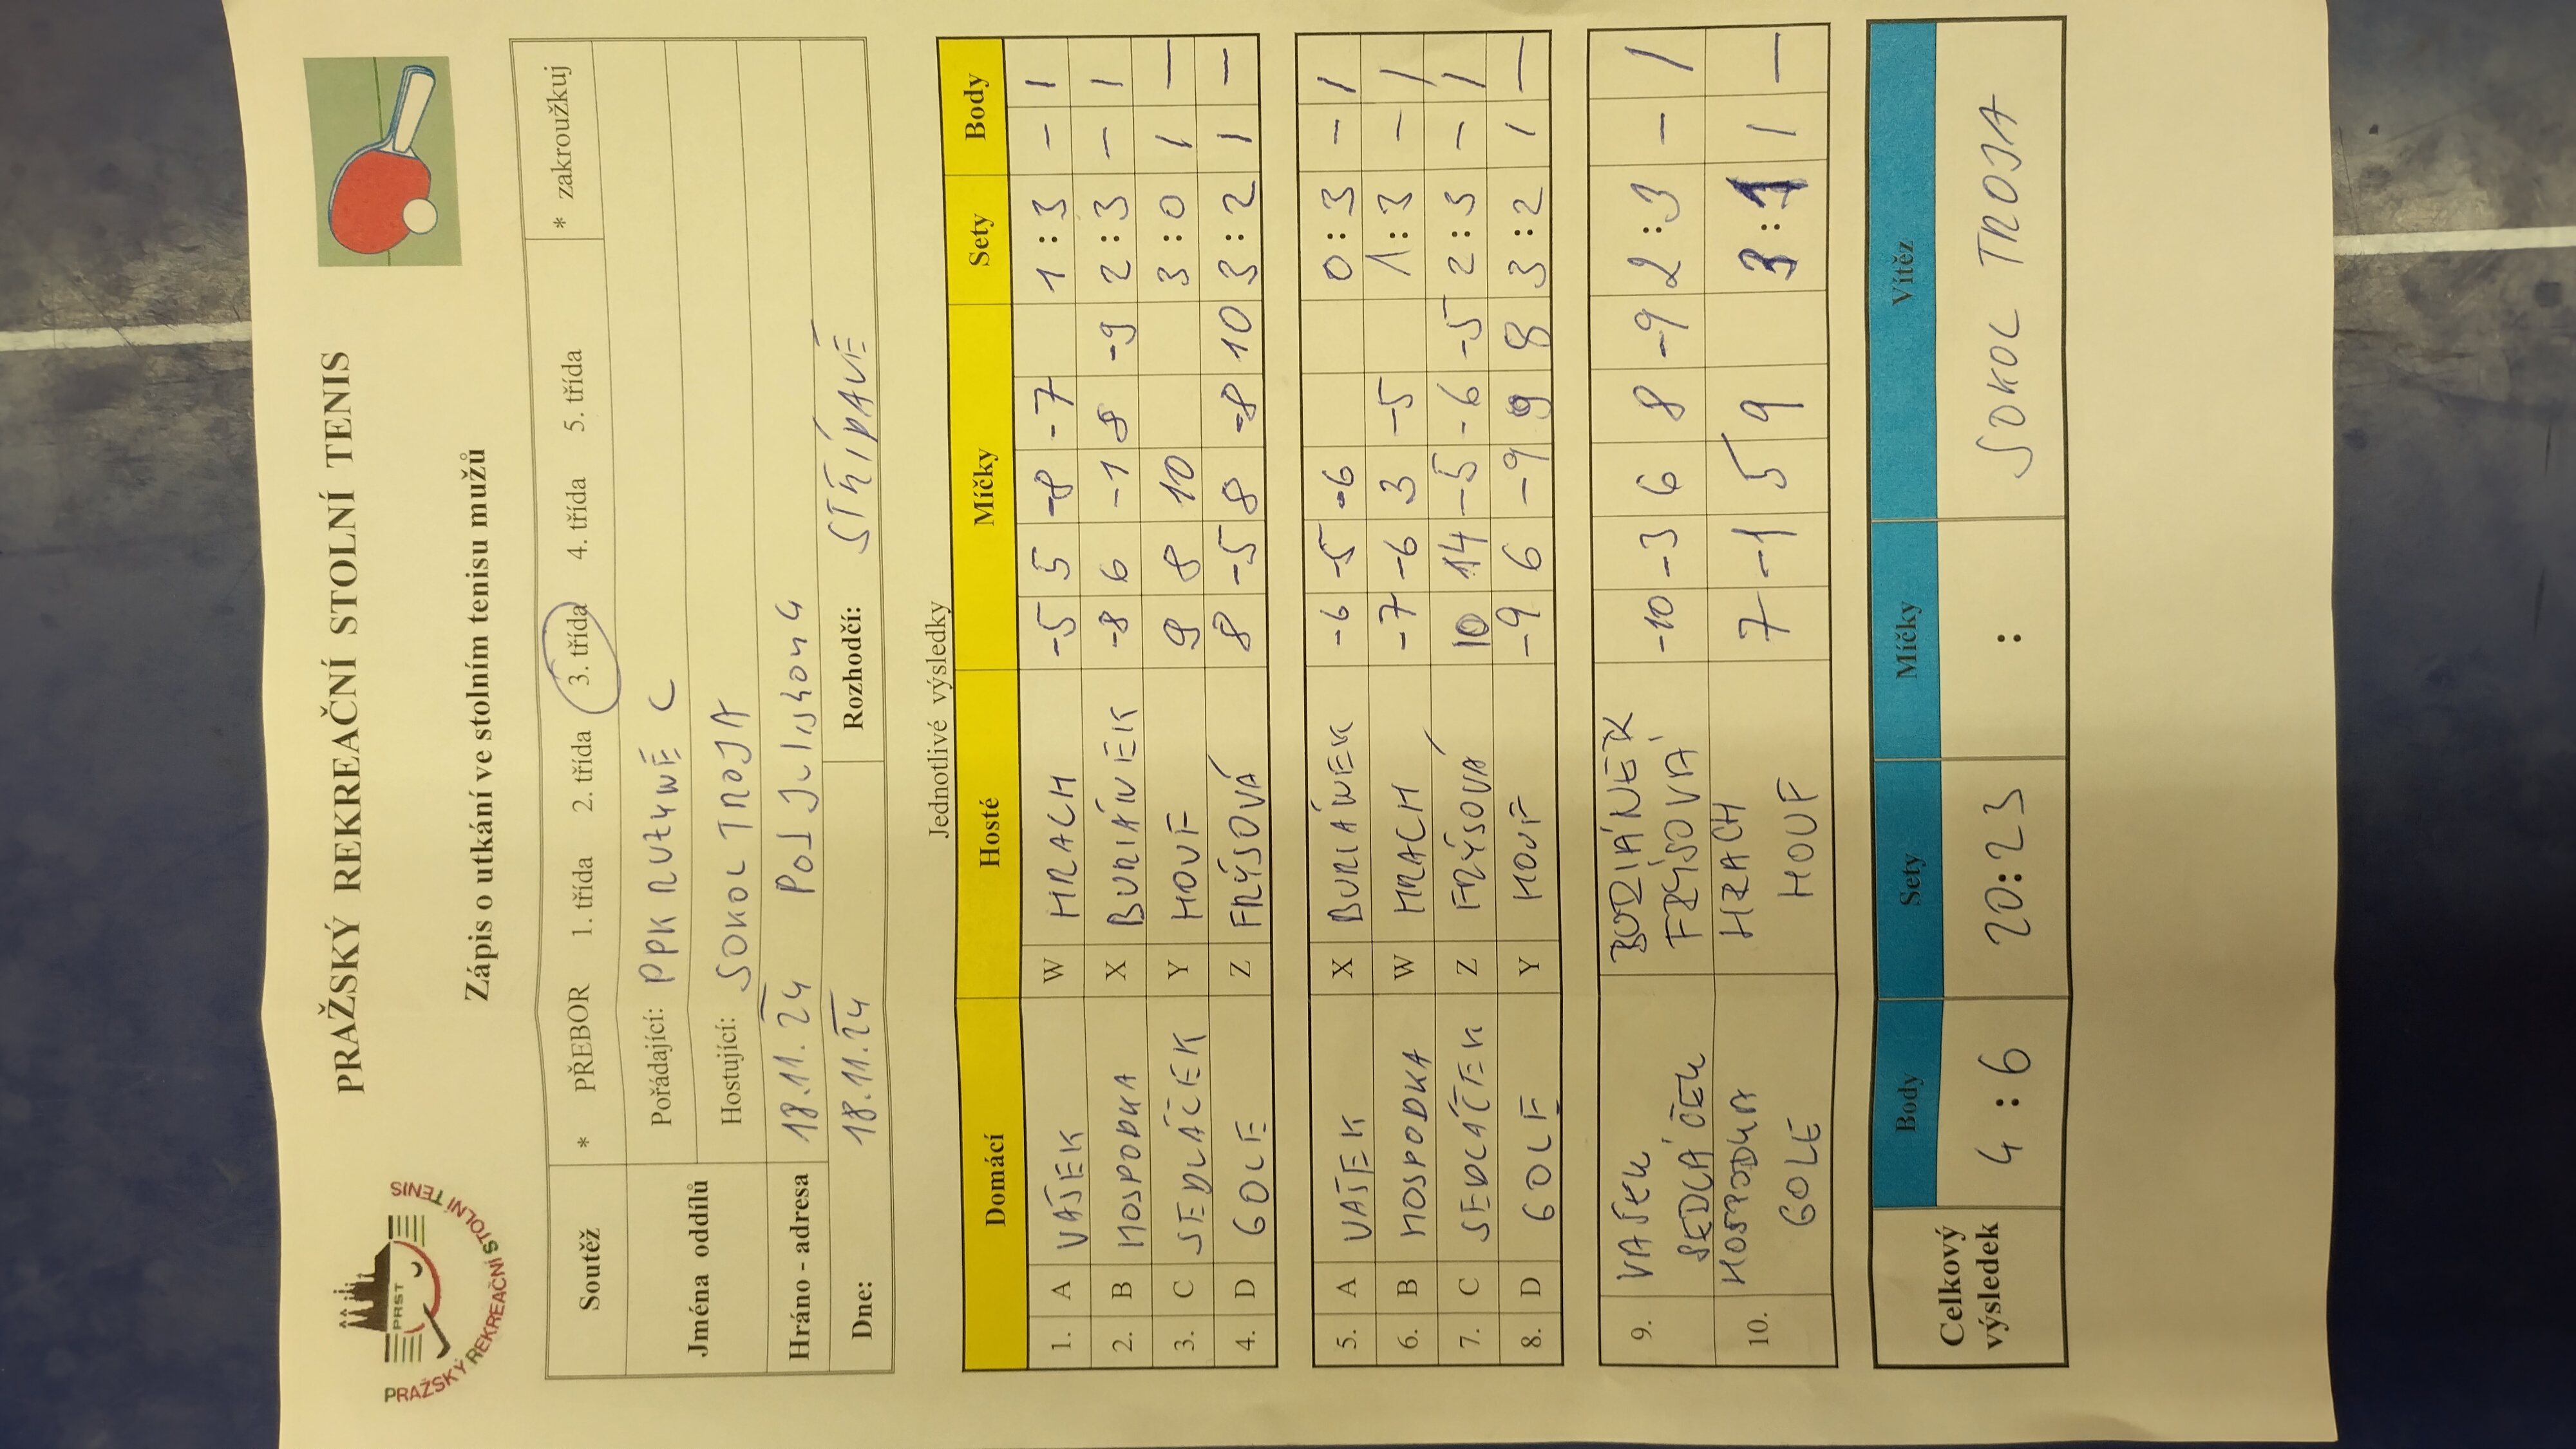 PRAŽSKÝ REKREAČNÍ STOLNÍ TENIS
PRST
PRAŽSKÝ REKREAČNÍ STOLNÍ TENIS
Zápis o utkání ve stolním tenisu mužů
Soutěž * PŘEBOR 1. třída 2. třída 3. třída 4. třída 5. třída * zakroužkuj
Jména oddílů Pořádající: PPK RUZYNĚ C
Hostující: SOKOL TROJA
Hráno - adresa 18.11.24 POD JULISKOU 4
Dne: 18.11.24 Rozhodčí: STŘÍDAVĚ
Jednotlivé výsledky
Domácí Hosté Míčky Sety Body
1. A VAŠEK W HRACH -5 5 -8 -7 1 : 3 – 1
2. B HOSPODKA X BURIÁNEK -8 6 -1 8 -9 2 : 3 – 1
3. C SEDLÁČEK Y HOUF 9 8 10 3 : 0 1 –
4. D GOLE Z FRÝSOVÁ 8 -5 8 -8 10 3 : 2 1 –
5. A VAŠEK X BURIÁNEK -6 -5 -6 0 : 3 – 1
6. B HOSPODKA W HRACH -7 -6 3 -5 1 : 3 – 1
7. C SEDLÁČEK Z FRÝSOVÁ 10 14 -5 -6 -5 2 : 3 – 1
8. D GOLE Y HOUF -9 6 -9 9 8 3 : 2 1 –
9. VAŠEK BURIÁNEK -10 -3 6 8 -9 2 : 3 – 1
SEDLÁČEK FRÝSOVÁ
10. HOSPODKA HRACH 7 -1 5 9 3 : 1 1 –
GOLE HOUF
Body Sety Míčky Vítěz
Celkový výsledek 4 : 6 20 : 23 : SOKOL TROJA